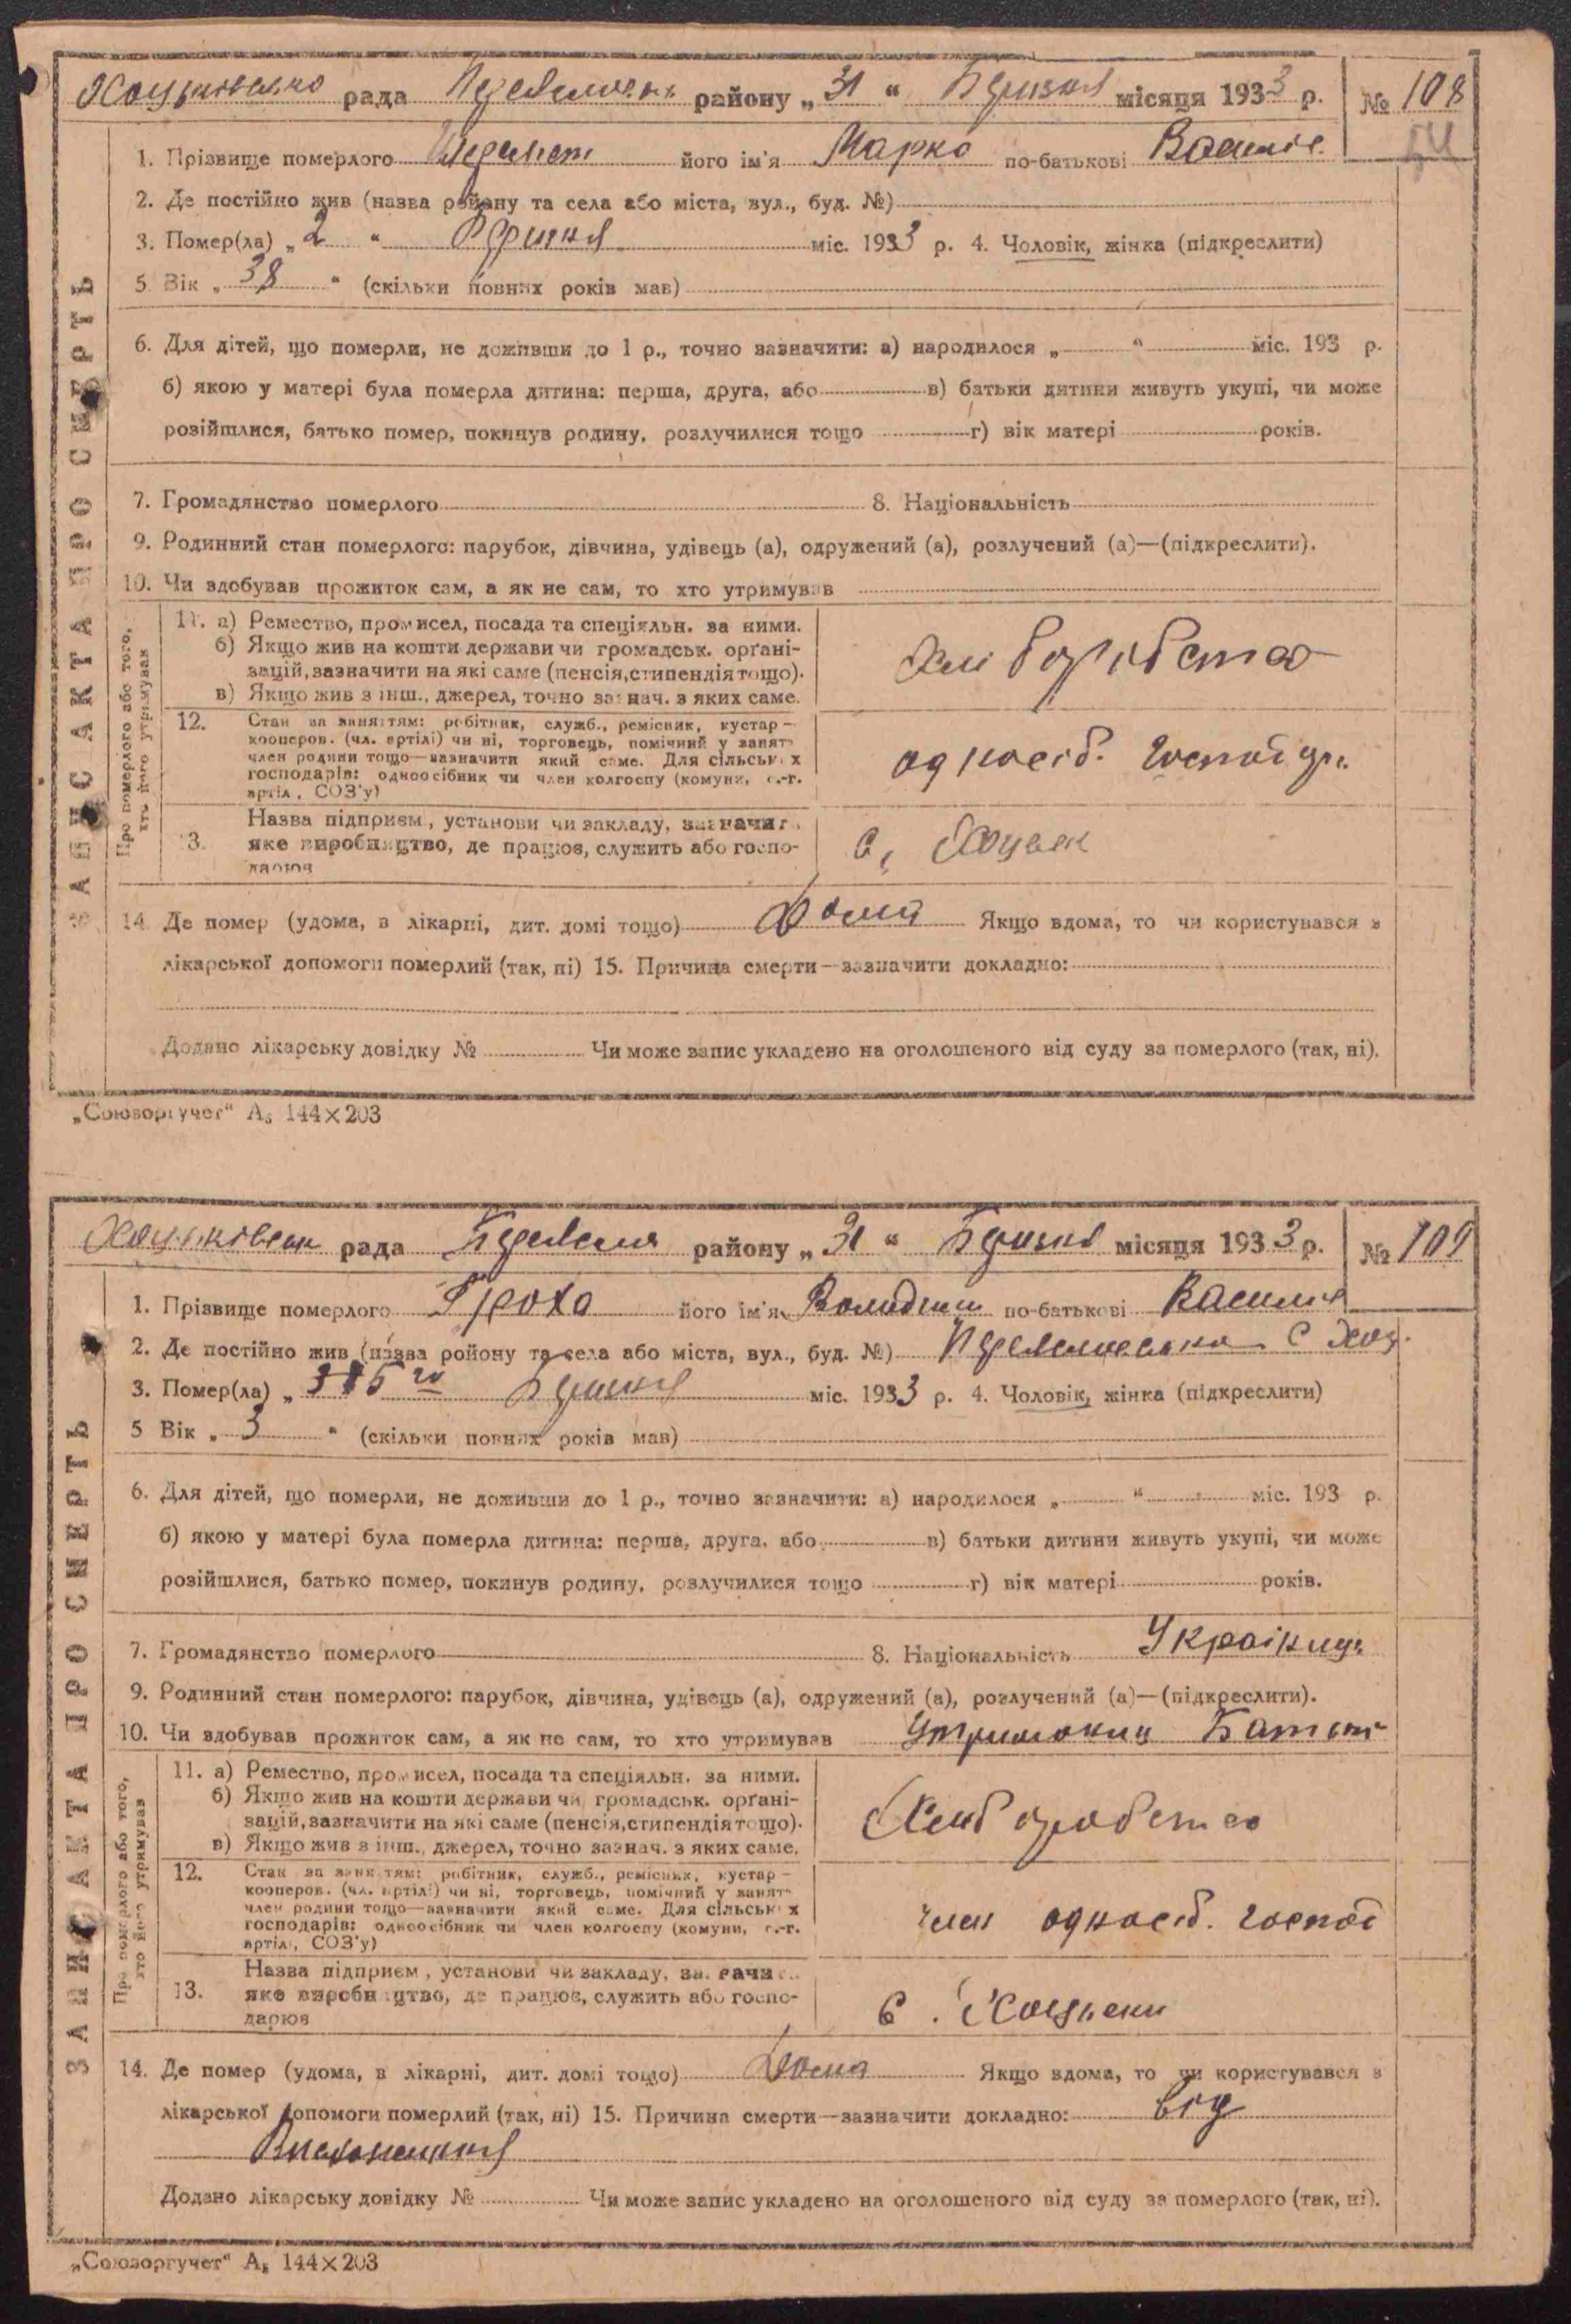 рада району „ 31 “ місяця 1933 р. № 108
1. Прізвище померлого його ім'я Марко по-батькові
2. Де постійно жив (назва району та села або міста, вул., буд. №)
3. Помер(ла) „ 2 “ міс. 1933 р. 4. Чоловік, жінка (підкреслити)
5. Вік „ 38 “ (скільки повних років мав)
6. Для дітей, що померли, не доживши до 1 р., точно зазначити: а) народилося „ “ міс. 193 р.
б) якою у матері була померла дитина: перша, друга, або в) батьки дитини живуть укупі, чи може
розійшлися, батько помер, покинув родину, розлучилися тощо г) вік матері років.
7. Громадянство померлого 8. Національність
9. Родинний стан померлого: парубок, дівчина, удівець (а), одружений (а), розлучений (а)—(підкреслити).
10. Чи здобував прожиток сам, а як не сам, то хто утримував
11. а) Ремество, промисел, посада та спеціяльн. за ними.
б) Якщо жив на кошти держави чи громадськ. орґані-
зацій, зазначити на які саме (пенсія, стипендія тощо).
в) Якщо жив з інш., джерел, точно зазнач. з яких саме.
Хліборобство
12. Стан за заняттям: робітник, служб., ремісник, кустар—
кооперов. (чл. артілі) чи ні, торговець, помічний у занят.
член родини тощо—зазначити який саме. Для сільських
господарів: одноосібник чи член колгоспу (комуни, с.-г.
артіл., СОЗ'у)
одноосіб.
13. Назва підприєм., установи чи закладу, зазначити
яке виробництво, де працює, служить або госпо-
дарює
с.
Про померлого або того, хто його утримував
14. Де помер (удома, в лікарні, дит. домі тощо) Дома Якщо вдома, то чи користувався з
лікарської допомоги померлий (так, ні) 15. Причина смерти—зазначити докладно:
Додано лікарську довідку № Чи може запис укладено на оголошеного від суду за померлого (так, ні).
ЗАПИС АКТА ПРО СМЕРТЬ
„Союзоргучет“ А₅ 144×203
рада району „ 31 “ місяця 1933 р. № 109
1. Прізвище померлого його ім'я по-батькові
2. Де постійно жив (назва району та села або міста, вул., буд. №)
3. Помер(ла) „ міс. 1933 р. 4. Чоловік, жінка (підкреслити)
5 Вік „ 3 “ (скільки повних років мав)
6. Для дітей, що померли, не доживши до 1 р., точно зазначити: а) народилося „ “ міс. 193 р.
б) якою у матері була померла дитина: перша, друга, або в) батьки дитини живуть укупі, чи може
розійшлися, батько помер, покинув родину, розлучилися тощо г) вік матері років.
7. Громадянство померлого 8. Національність Українець
9. Родинний стан померлого: парубок, дівчина, удівець (а), одружений (а), розлучений (а)—(підкреслити).
10. Чи здобував прожиток сам, а як не сам, то хто утримував
11. а) Ремество, промисел, посада та спеціяльн. за ними.
б) Якщо жив на кошти держави чи громадськ. орґані-
зацій, зазначити на які саме (пенсія, стипендія тощо).
в) Якщо жив з інш., джерел, точно зазнач. з яких саме.
Хлиборобство
12. Стан за заняттям: робітник, служб., ремісник, кустар—
кооперов. (чл. артілі) чи ні, торговець, помічний у занят.
член родини тощо—зазначити який саме. Для сільських
господарів: одноосібник чи член колгоспу (комуни, с.-г.
артіл., СОЗ'у)
член одноосіб. господ
13. Назва підприєм., установи чи закладу, зазначити
яке виробництво, де працює, служить або госпо-
дарює
с.
Про померлого або того, хто його утримував
14. Де помер (удома, в лікарні, дит. домі тощо) Дома Якщо вдома, то чи користувався з
лікарської допомоги померлий (так, ні) 15. Причина смерти—зазначити докладно: від
Додано лікарську довідку № Чи може запис укладено на оголошеного від суду за померлого (так, ні).
ЗАПИС АКТА ПРО СМЕРТЬ
„Союзоргучет“ А₅ 144×203